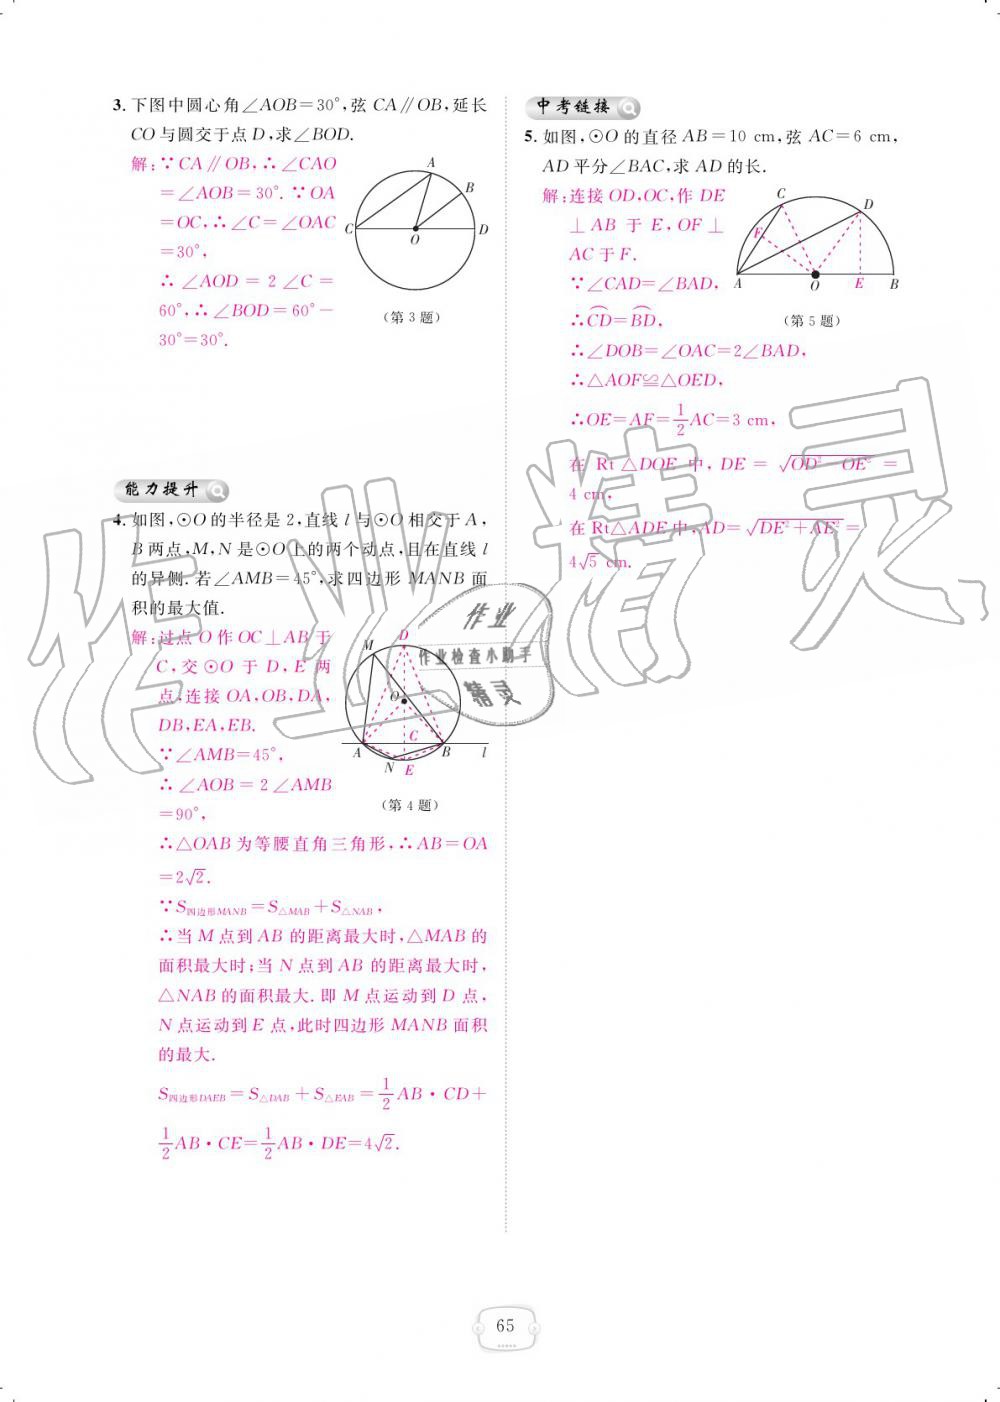 3. 下图中圆心角∠AOB=30°,弦 CA∥OB,延长
CO 与圆交于点 D,求∠BOD.
解:∵CA∥OB,∴∠CAO
=∠AOB=30°.∵OA
=OC,∴∠C=∠OAC
=30°,
∴∠AOD=2∠C=
60°,∴∠BOD=60°−
30°=30°.
A
B
C
O
D
(第 3 题)
能力提升
4. 如图,⊙O 的半径是 2,直线 l 与⊙O 相交于 A,
B 两点,M,N 是⊙O 上的两个动点,且在直线 l
的异侧.若∠AMB=45°,求四边形 MANB 面
积的最大值.
解:过点 O 作 OC⊥AB 于
C,交⊙O 于 D,E 两
点,连接 OA,OB,DA,
DB,EA,EB.
∵∠AMB=45°,
∴∠AOB=2∠AMB
=90°,
D
M
O
C
A
B
l
N
E
(第 4 题)
∴△OAB 为等腰直角三角形,∴AB=OA
=2√2.
∵S四边形MANB=S△MAB+S△NAB,
∴当 M 点到 AB 的距离最大时,△MAB 的
面积最大时;当 N 点到 AB 的距离最大时,
△NAB 的面积最大.即 M 点运动到 D 点,
N 点运动到 E 点,此时四边形 MANB 面积
的最大.
S四边形DAEB=S△DAB+S△EAB=1/2AB·CD+
1/2AB·CE=1/2AB·DE=4√2.
中考链接
5. 如图,⊙O 的直径 AB=10 cm,弦 AC=6 cm,
AD 平分∠BAC,求 AD 的长.
解:连接 OD,OC,作 DE
⊥AB 于 E,OF⊥
AC 于 F.
∵∠CAD=∠BAD,
∴CD=BD,
C
D
F
A
O
E
B
(第 5 题)
∴∠DOB=∠OAC=2∠BAD,
∴△AOF≌△OED,
∴OE=AF=1/2AC=3 cm,
在 Rt△DOE 中,DE=√(OD²−OE²)=
4 cm,
在 Rt△ADE 中,AD=√(DE²+AE²)=
4√5 cm.
作业精灵
作业
作业检查小助手
精灵
65